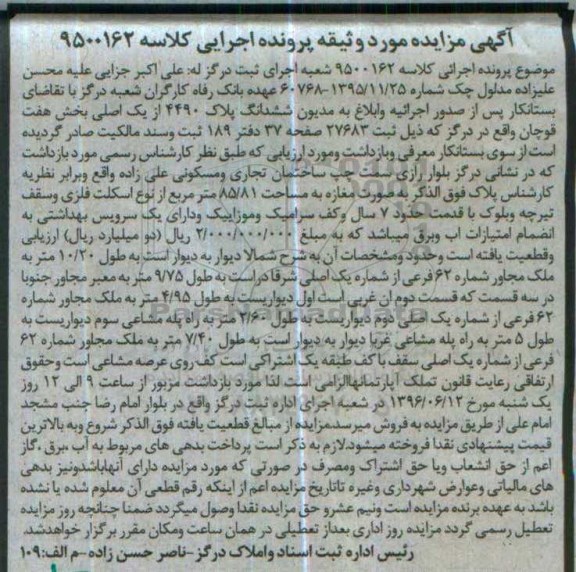 آگهی مزایده مورد وثیقه پرونده اجرایی کلاسه ۹۵۰۰۱۶۲
موضوع پرونده اجرائی کلاسه ۹۵۰۰۱۶۲ شعبه اجرای ثبت درگز له: علی اکبر جزایی علیه محسن
علیزاده مدلول چک شماره ۱۳۹۵/۱۱/۲۵-۶۰۷۶۸ عهده بانک رفاه کارگران شعبه درگز با تقاضای
بستانکار پس از صدور اجرائیه وابلاغ به مدیون ششدانگ پلاک ۴۴۹۰ از یک اصلی بخش هفت
قوچان واقع در درگز که ذیل ثبت ۲۷۶۸۳ صفحه ۳۷ دفتر ۱۸۹ ثبت وسند مالکیت صادر گردیده
است از سوی بستانکار معرفی وبازداشت ومورد ارزیابی که طبق نظر کارشناس رسمی مورد بازداشت
که در نشانی درگز بلوار رازی سمت چپ ساختمان تجاری ومسکونی علی زاده واقع وبرابر نظریه
کارشناس پلاک فوق الذکر به صورت مغازه به مساحت ۸۵/۸۱ متر مربع از نوع اسکلت فلزی وسقف
تیرچه وبلوک با قدمت حدود ۷ سال وکف سرامیک وموزاییک ودارای یک سرویس بهداشتی به
انضمام امتیازات اب وبرق میباشد که به مبلغ ۲/۰۰۰/۰۰۰/۰۰۰ ریال (دو میلیارد ریال) ارزیابی
وقطعیت یافته است وحدود ومشخصات آن به شرح شمالا دیوار به دیوار است به طول ۱۰/۲۰ متر به
ملک مجاور شماره ۶۲ فرعی از شماره یک اصلی شرقا درب است به طول ۹/۷۵ متر به معبر مجاور جنوبا
در سه قسمت که قسمت دوم ان غربی است اول دیواریست به طول ۴/۹۵ متر به ملک مجاور شماره
۶۲ فرعی از شماره یک اصلی دوم دیواریست به طول ۲/۶۰ متر به راه پله مشاعی سوم دیواریست به
طول ۵ متر به راه پله مشاعی غربا دیوار به دیوار است به طول ۷/۴۰ متر به ملک مجاور شماره ۶۲
فرعی از شماره یک اصلی سقف با کف طبقه یک اشتراکی است کف روی عرصه مشاعی است وحقوق
ارتفاقی رعایت قانون تملک آپارتمانها الزامی است لذا مورد بازداشت مزبور از ساعت ۹ الی ۱۲ روز
یک شنبه مورخ ۱۳۹۶/۰۶/۱۲ در شعبه اجرای اداره ثبت درگز واقع در بلوار امام رضا جنب مسجد
امام علی از طریق مزایده به فروش میرسد.مزایده از مبالغ قطعیت یافته فوق الذکر شروع وبه بالاترین
قیمت پیشنهادی نقدا فروخته میشود.لازم به ذکر است پرداخت بدهی های مربوط به آب ،برق ،گاز
اعم از حق انشعاب ویا حق اشتراک ومصرف در صورتی که مورد مزایده دارای آنهاباشدونیز بدهی
های مالیاتی وعوارض شهرداری وغیره تاتاریخ مزایده اعم از اینکه رقم قطعی آن معلوم شده یا نشده
باشد به عهده برنده مزایده است ونیم عشرو حق مزایده نقدا وصول میگردد ضمنا چنانچه روز مزایده
تعطیل رسمی گردد مزایده روز اداری بعداز تعطیلی در همان ساعت ومکان مقرر برگزار خواهدشد
رئیس اداره ثبت اسناد واملاک درگز -ناصر حسن زاده-م الف:۱۰۹